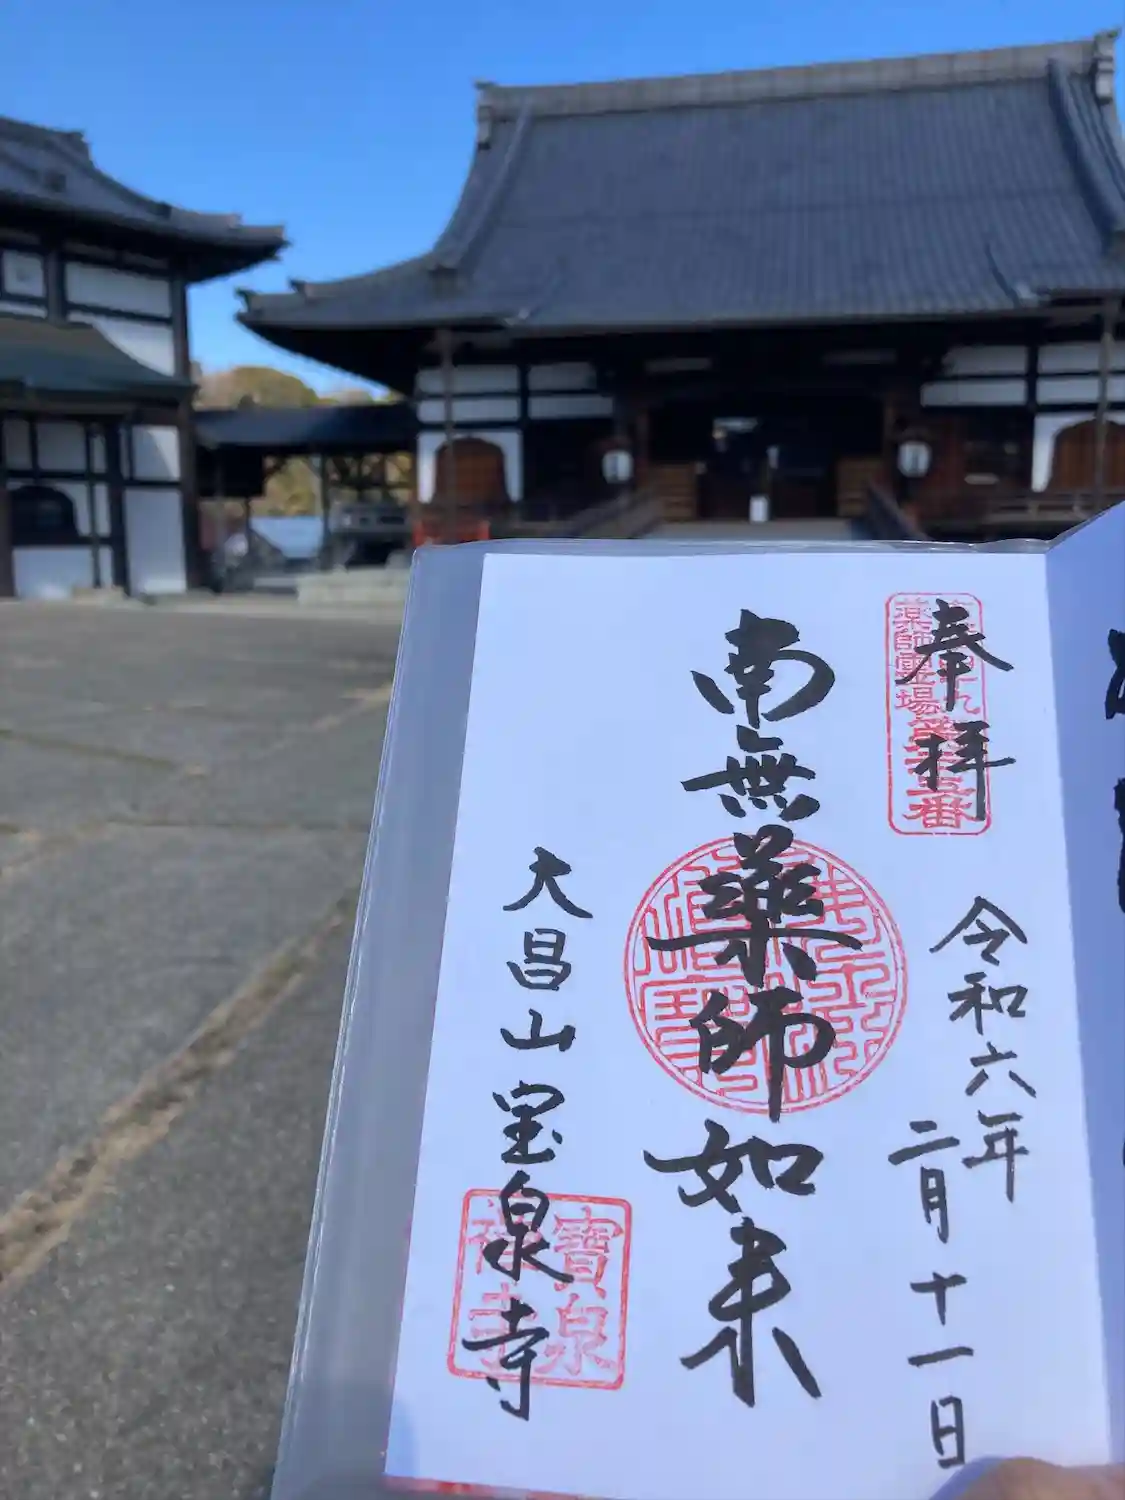 奉拝
令和六年
二月十一日
南無薬師如来
大昌山宝泉寺
薬師霊場
寶泉
禅寺